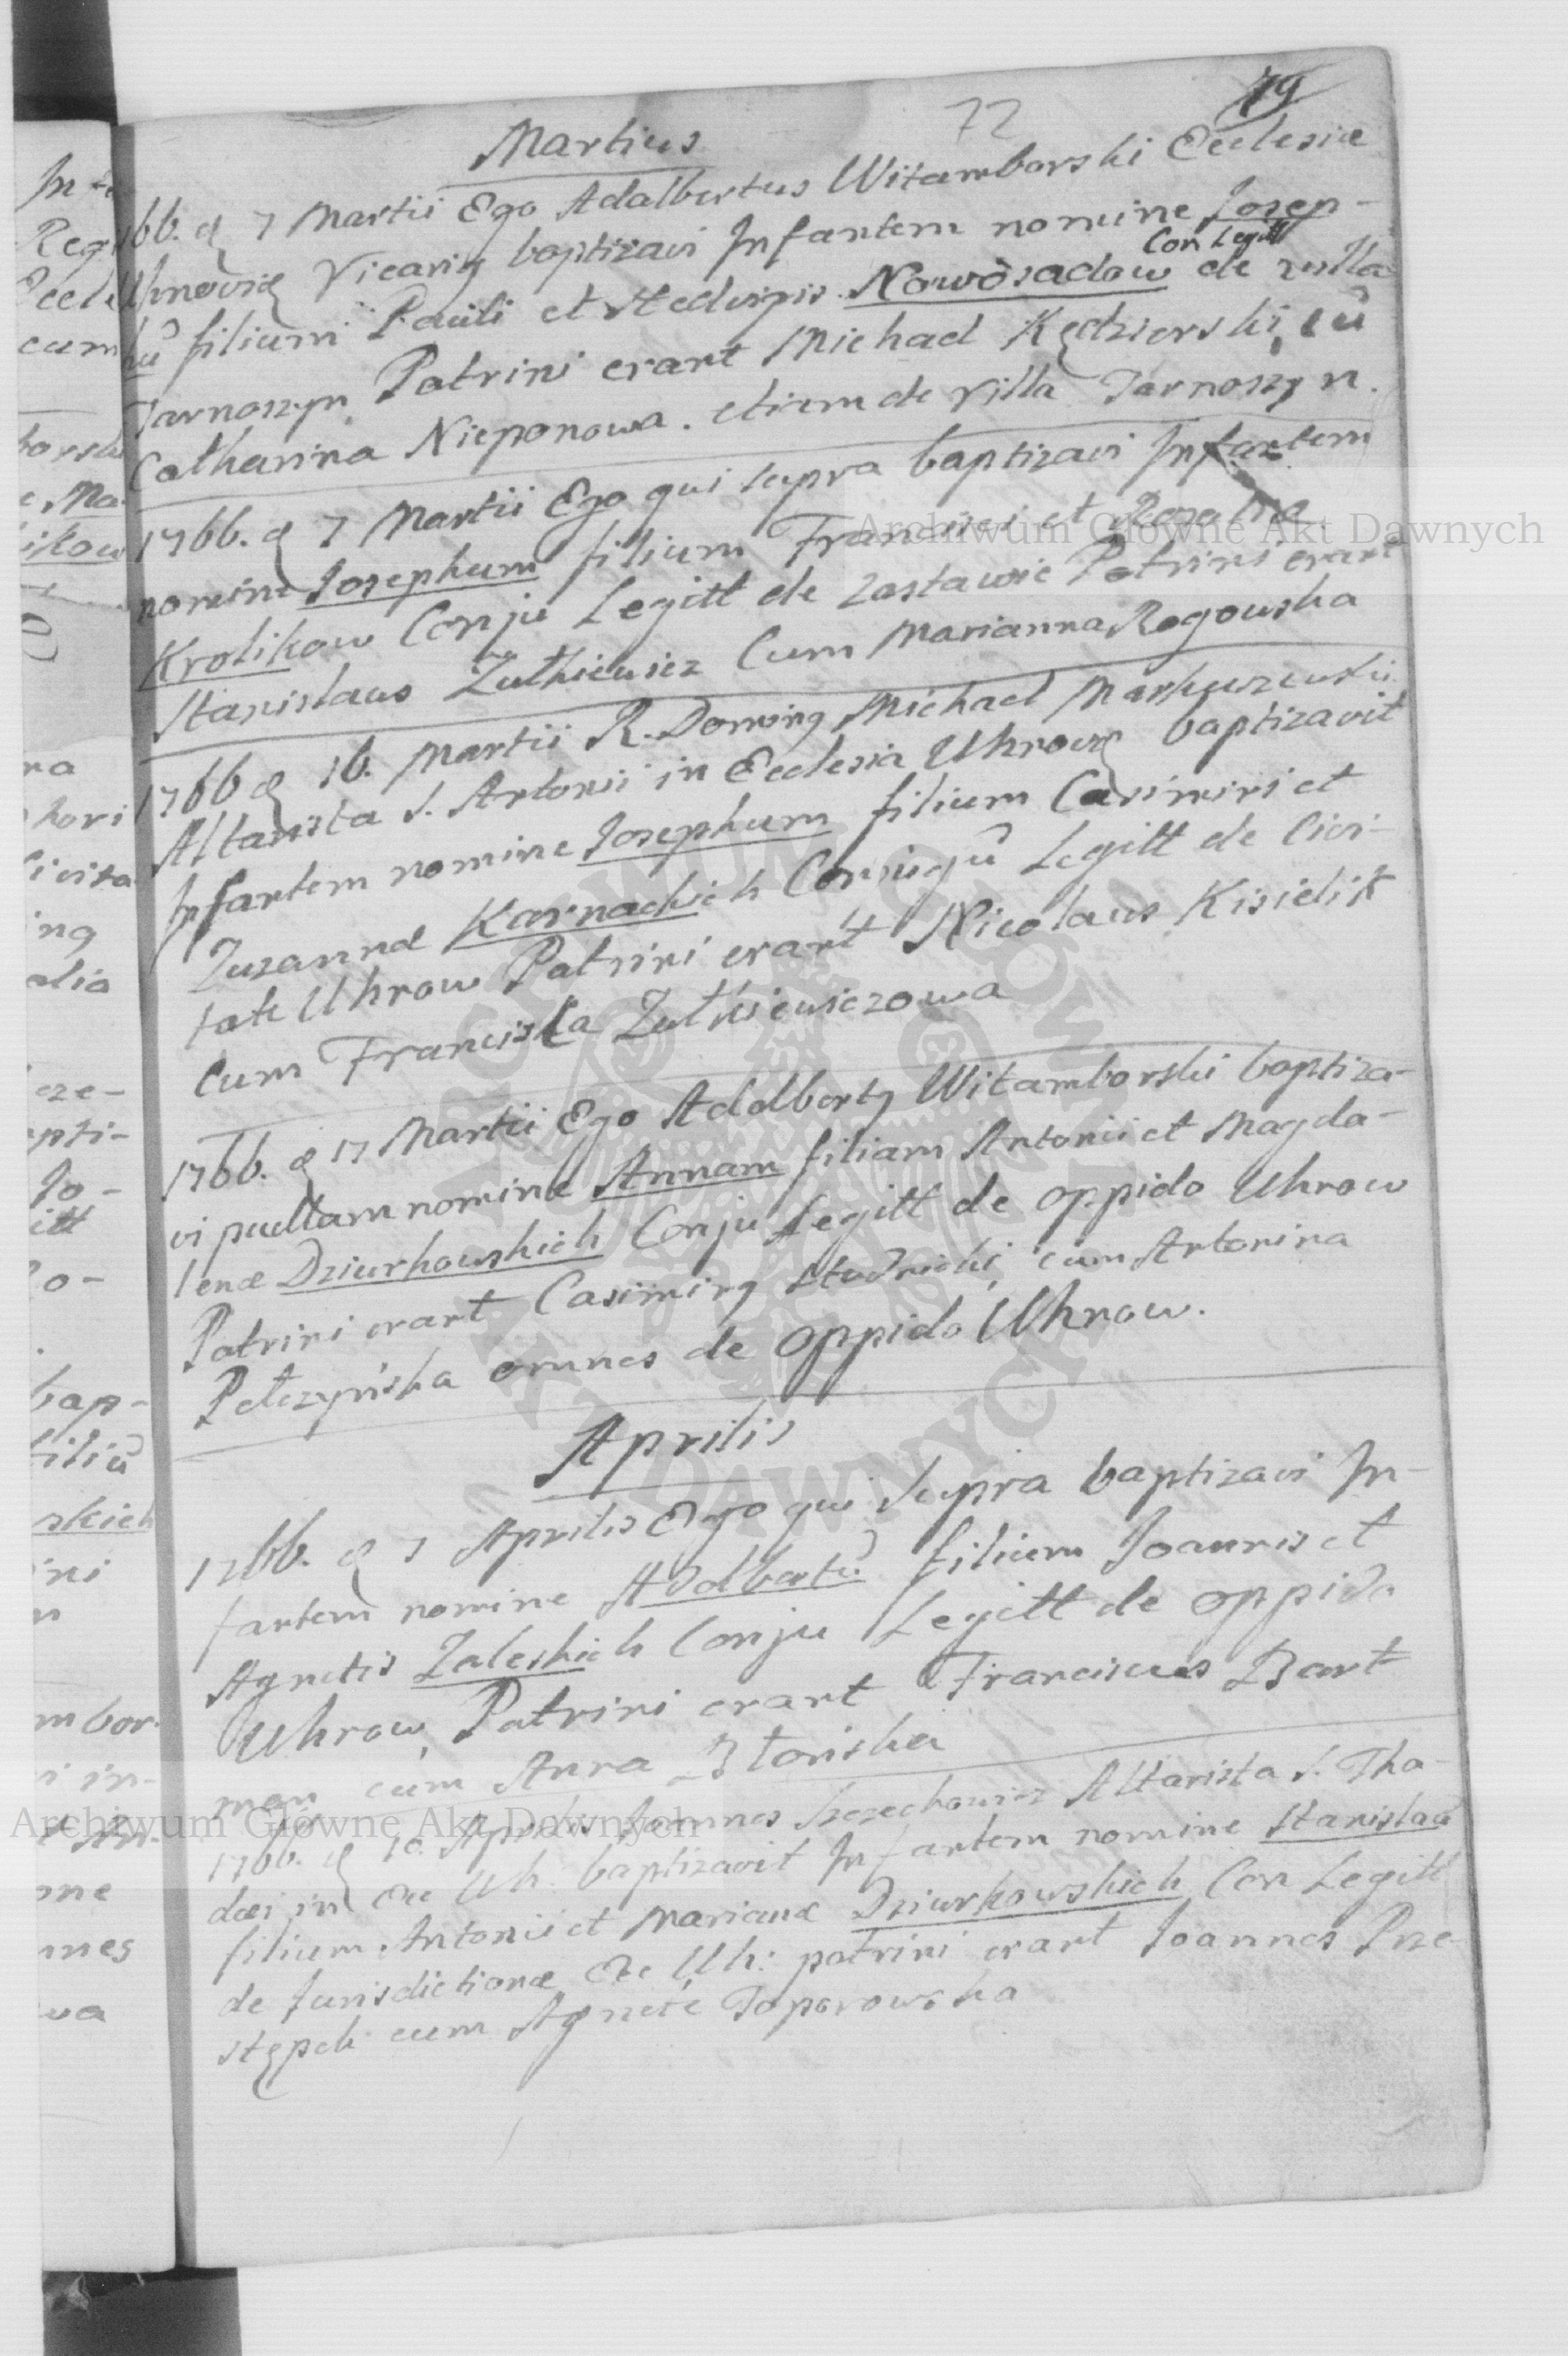 79
72
Martius
1766. d 7 Martii Ego Adalbertus Witamborski Ecclesiæ
Uhnoviæ Vicariꝰ baptizavi Infantem nomine Josep-
Con Legitt
hū filium Pauli et Hedvigis Nowosadow de villa
Tarnoszyn Patrini erant Michael Kędzierski, cū
Catharina Nieponowa. etiam de Villa Tarnoszyn.
1766. d 7 Martii Ego qui supra baptizavi Infantem
nomine Josephum filium Francisci et Rosaliæ
Krolikow Conju Legitt de Zastawie Patrini erant
Stanislaus Zułkiewicz Cum Marianna Rogowska
1766 d 16. Martii R. Dominꝰ Michael
Altarista S. Antonii in Ecclesia Uhnow baptizavit
Infantem nomine Josephum filium Casimiri et
Zuzannæ Karnackich Conjugū Legitt de Civi-
tate Uhnow Patrini erant Nicolaus Kisielik
Cum Francisca Zułkiewiczowa
1766. d 17 Martii Ego Adalbertꝰ Witamborski baptiza-
vi puellam nomine Annam filiam Antonii et Magda-
lenæ Dziurkowskich Conju Legitt de oppido Uhnow
Patrini erant Casimirꝰ Studnicki cum Antonina
Pełczyńska omnes de oppido Uhnow.
Aprilis
1766. d 7 Aprilis Ego qui Supra baptizavi In-
fantem nomine Adalbertū filium Joannis et
Agnetis Zaleskich Conju Legitt de oppido
Uhnow Patrini erant Franciscus Bart
man cum Anna Błońska
1766. d 10. Aprilis Joannes Altarista S. Tha-
dæi in Ecc Uh. baptizavit Infantem nomine Stanislaū
filium Antonii et Mariannæ Dziurkowskich Con Legitt
de Jurisdictione Ecc Uh: patrini erant Joannes Prze-
stępski cum Agnete Toporowska
Archiwum Główne Akt Dawnych
Archiwum Główne Akt Dawnych
ARCHIWUM GŁÓWNE AKT DAWNYCH